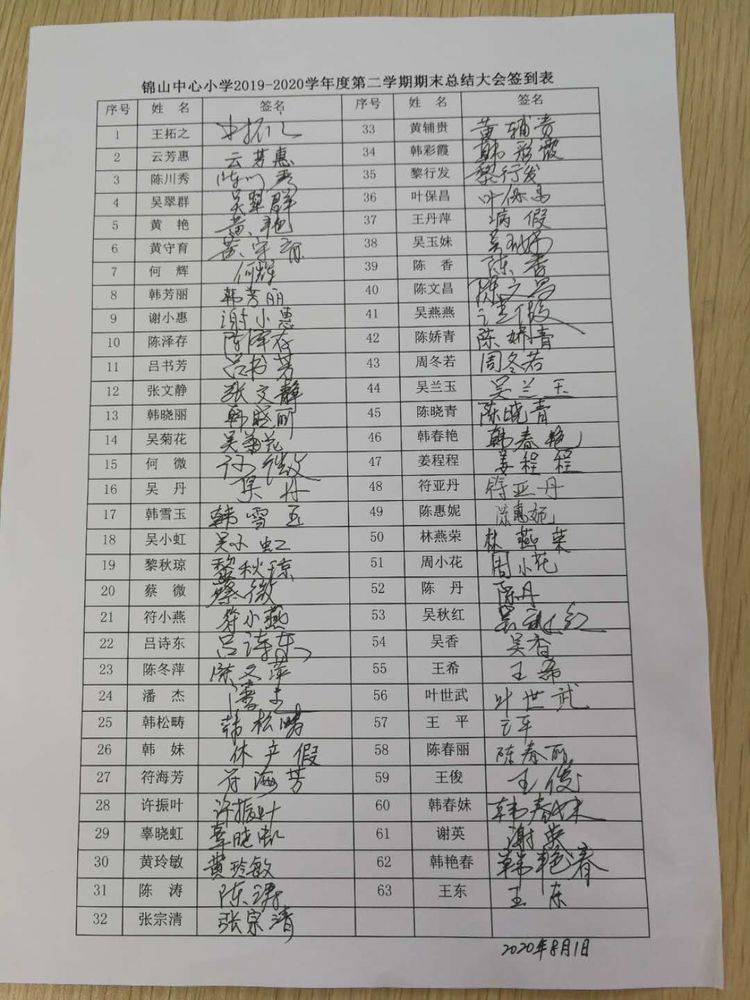 锦山中心小学2019-2020学年度第二学期期末总结大会签到表
序号 姓 名 签名 序号 姓 名 签名
1 王拓之 王拓之 33 黄辅贵 黄辅贵
2 云芳惠 云芳惠 34 韩彩霞 韩彩霞
3 陈川秀 陈川秀 35 黎行发 黎行发
4 吴翠群 吴翠群 36 叶保昌 叶保昌
5 黄 艳 黄艳 37 王丹萍 病假
6 黄守育 黄守育 38 吴玉妹 吴玉妹
7 何 辉 何辉 39 陈 香 陈香
8 韩芳丽 韩芳丽 40 陈文昌 陈文昌
9 谢小惠 谢小惠 41 吴燕燕 请假
10 陈泽存 陈泽存 42 陈娇青 陈娇青
11 吕书芳 吕书芳 43 周冬若 周冬若
12 张文静 张文静 44 吴兰玉 吴兰玉
13 韩晓丽 韩晓丽 45 陈晓青 陈晓青
14 吴菊花 吴菊花 46 韩春艳 韩春艳
15 何 微 何微 47 姜程程 姜程程
16 吴 丹 吴丹 48 符亚丹 符亚丹
17 韩雪玉 韩雪玉 49 陈惠妮 陈惠妮
18 吴小虹 吴小虹 50 林燕荣 林燕荣
19 黎秋琼 黎秋琼 51 周小花 周小花
20 蔡 微 蔡微 52 陈 丹 陈丹
21 符小燕 符小燕 53 吴秋红 吴秋红
22 吕诗东 吕诗东 54 吴香 吴香
23 陈冬萍 陈冬萍 55 王希 王希
24 潘 杰 潘杰 56 叶世武 叶世武
25 韩松畴 韩松畴 57 王 平 王平
26 韩 妹 休产假 58 陈春丽 陈春丽
27 符海芳 符海芳 59 王俊 王俊
28 许振叶 许振叶 60 韩春妹 韩春妹
29 辜晓虹 辜晓虹 61 谢英 谢英
30 黄玲敏 黄玲敏 62 韩艳春 韩艳春
31 陈 涛 陈涛 63 王东 王东
32 张宗清 张宗清
2020年8月1